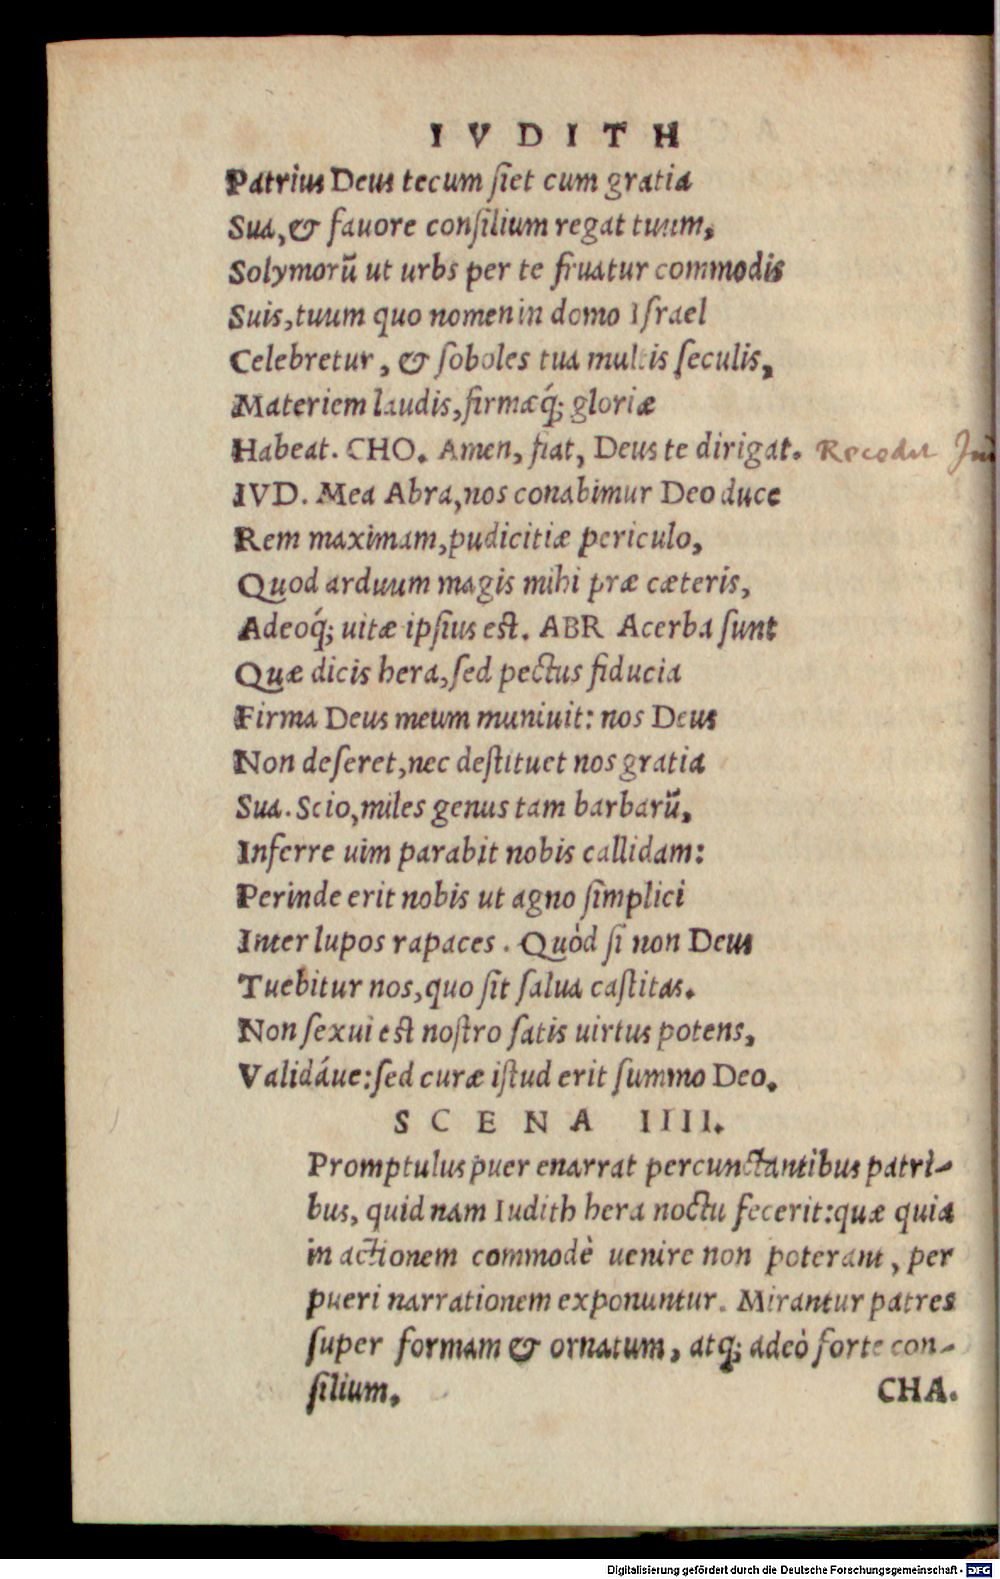 IVDITH
Patrius Deus tecum ſiet cum gratia
Sua, & fauore conſilium regat tuum,
Solymorū ut urbs per te fruatur commodis
Suis, tuum quo nomen in domo Iſrael
Celebretur, & ſoboles tua multis ſeculis,
Materiem laudis, firmæq́; gloriæ
Habeat. CHO. Amen, fiat, Deus te dirigat. Recedit
IVD. Mea Abra, nos conabimur Deo duce
Rem maximam, pudicitiæ periculo,
Quod arduum magis mihi præ cæteris,
Adeoq́; uitæ ipſius eſt. ABR Acerba ſunt
Quæ dicis hera, ſed pectus fiducia
Firma Deus meum muniuit: nos Deus
Non deſeret, nec deſtituet nos gratia
Sua. Scio, miles genus tam barbarū,
Inferre uim parabit nobis callidam:
Perinde erit nobis ut agno ſimplici
Inter lupos rapaces. Quòd ſi non Deus
Tuebitur nos, quo ſit ſalua caſtitas.
Non ſexui eſt noſtro ſatis uirtus potens,
Validáue: ſed curæ iſtud erit ſummo Deo.
SCENA IIII.
Promptulus puer enarrat percunctantibus patri-
bus, quid nam Iudith hera noctu fecerit: quæ quia
in actionem commodè uenire non poterant, per
pueri narrationem exponuntur. Mirantur patres
ſuper formam & ornatum, atq; adeò forte con-
ſilium. CHA.
Digitalisierung gefördert durch die Deutsche Forschungsgemeinschaft - DFG